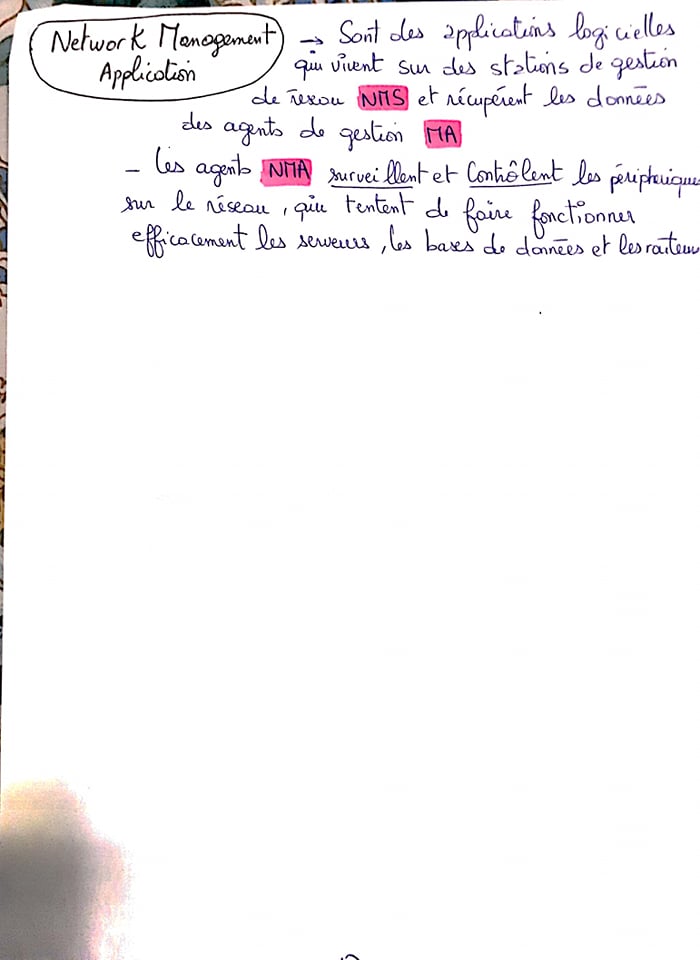 Network Management
Application
→ Sont des applications logicielles
qui vivent sur des stations de gestion
de resau NMS et récupérent les données
des agents de gestion MA
- Les agents NMA surveillent et Contrôlent les périphérique
sur le réseau, qui tentent de faire fonctionner
efficacement les serveurs, les bases de données et les